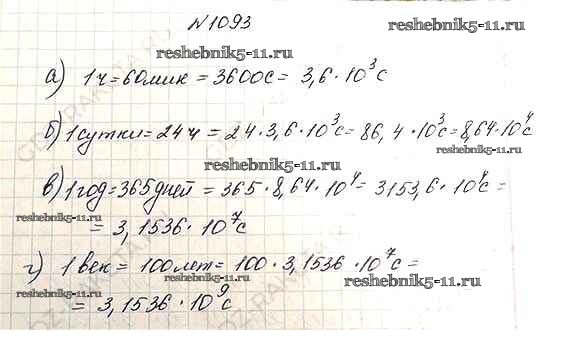 N1093
reshebnik5-11.ru
reshebnik5-11.ru
а) 1ч=60мин=3600с= 3,6·10³с
б) 1сутки=24ч=24·3,6·10³с=86,4·10³с=8,64·10⁴с
reshebnik5-11.ru
reshebnik5-11.ru
в) 1год=365дней=365·8,64·10⁴=3153,6·10⁴с=
reshebnik5-11.ru
reshebnik5-11.ru
=3,1536·10⁷с
г) 1век=100лет=100·3,1536·10⁷с=
reshebnik5-11.ru
reshebnik5-11.ru
reshebnik5-11.ru
=3,1536·10⁹с